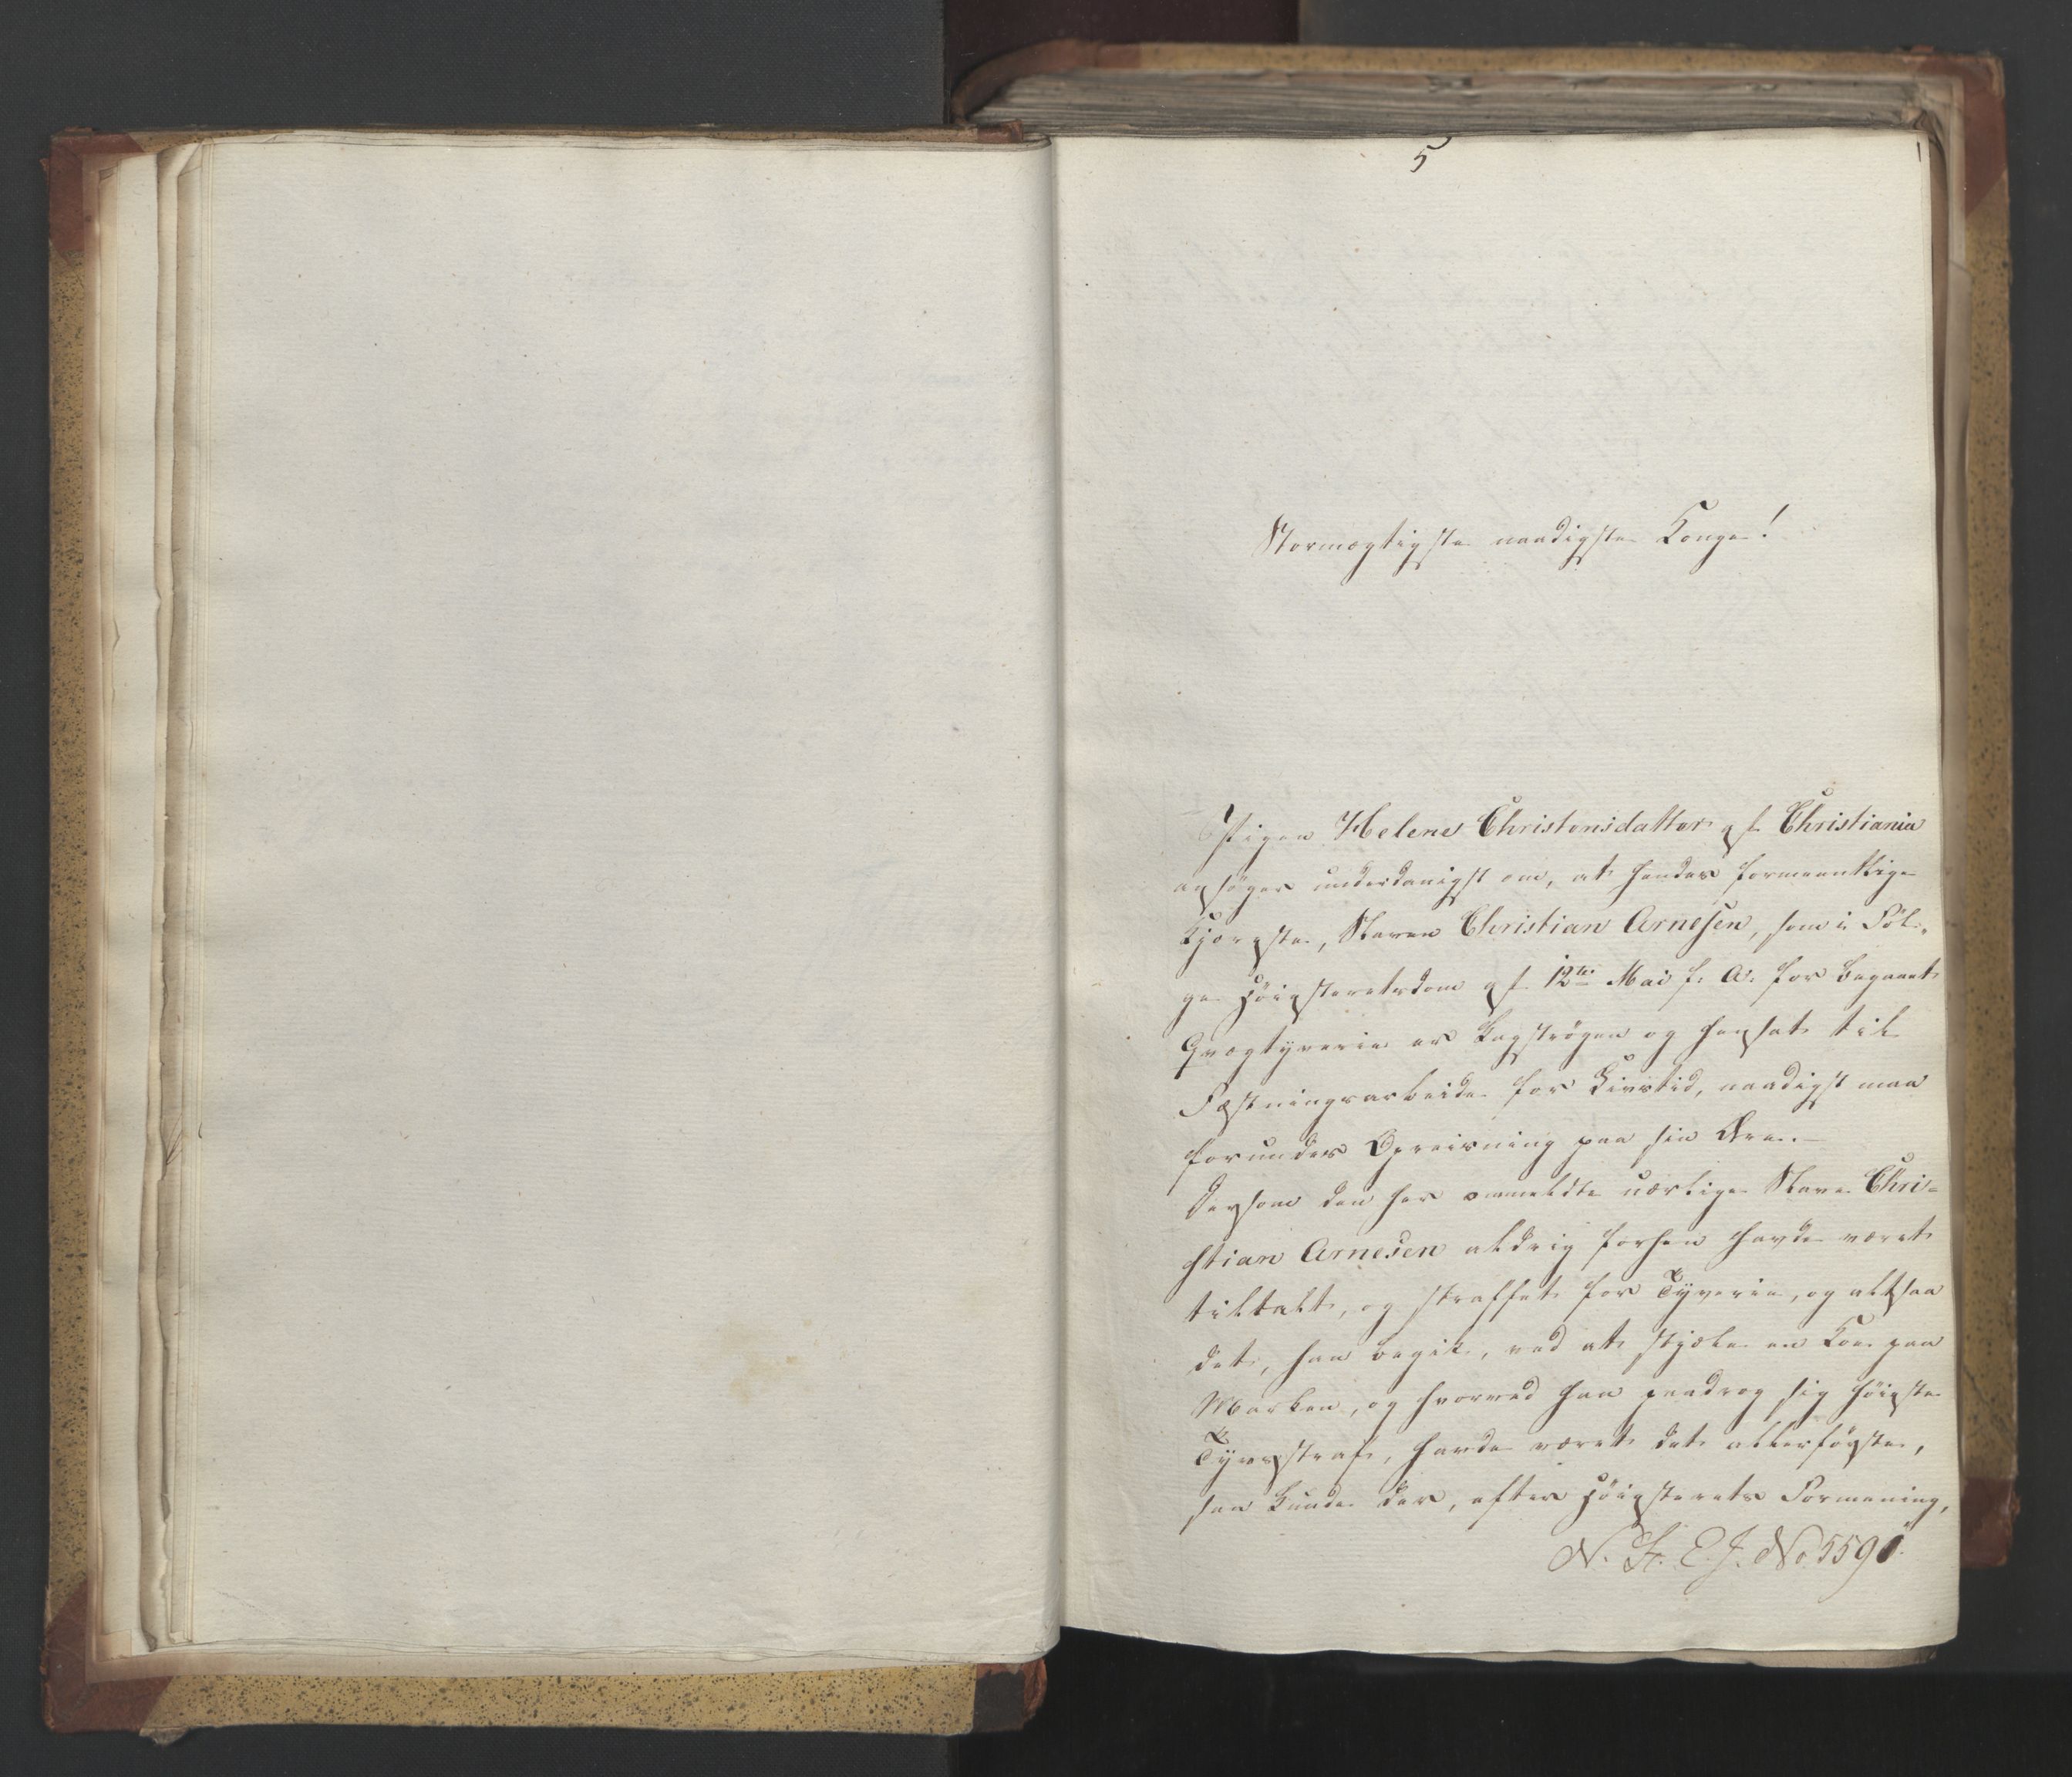 5
Stormægtigste naadigste Konge!
Pigen Helene Christensdatter af Christiania
ansøger underdanigst om, at hendes formeentlige
Kjæreste, Slaven Christian Arnesen, som i Føl-
ge Høiesteretsdom af 12te Mai f: A: for begaaet
Qvægtyverie er kagstrøgen og hensat til
Fæstningsarbeide for Livstid, naadigst maa
forundes Opreisning paa sin Ære.
Dersom den her ommeldte uærlige Slave Chri-
stian Arnesen aldrig forhen havde været
tiltalt, og straffet for Tyverie, og altsaa
det, han begik, ved at stjæle en Koe paa
Marken, og hvorved han paadrog sig høieste
Tyvsstraf, havde været det allerførste,
saa kunde der, efter Høiesterets Formening,
N. H. E. J. No. 5590